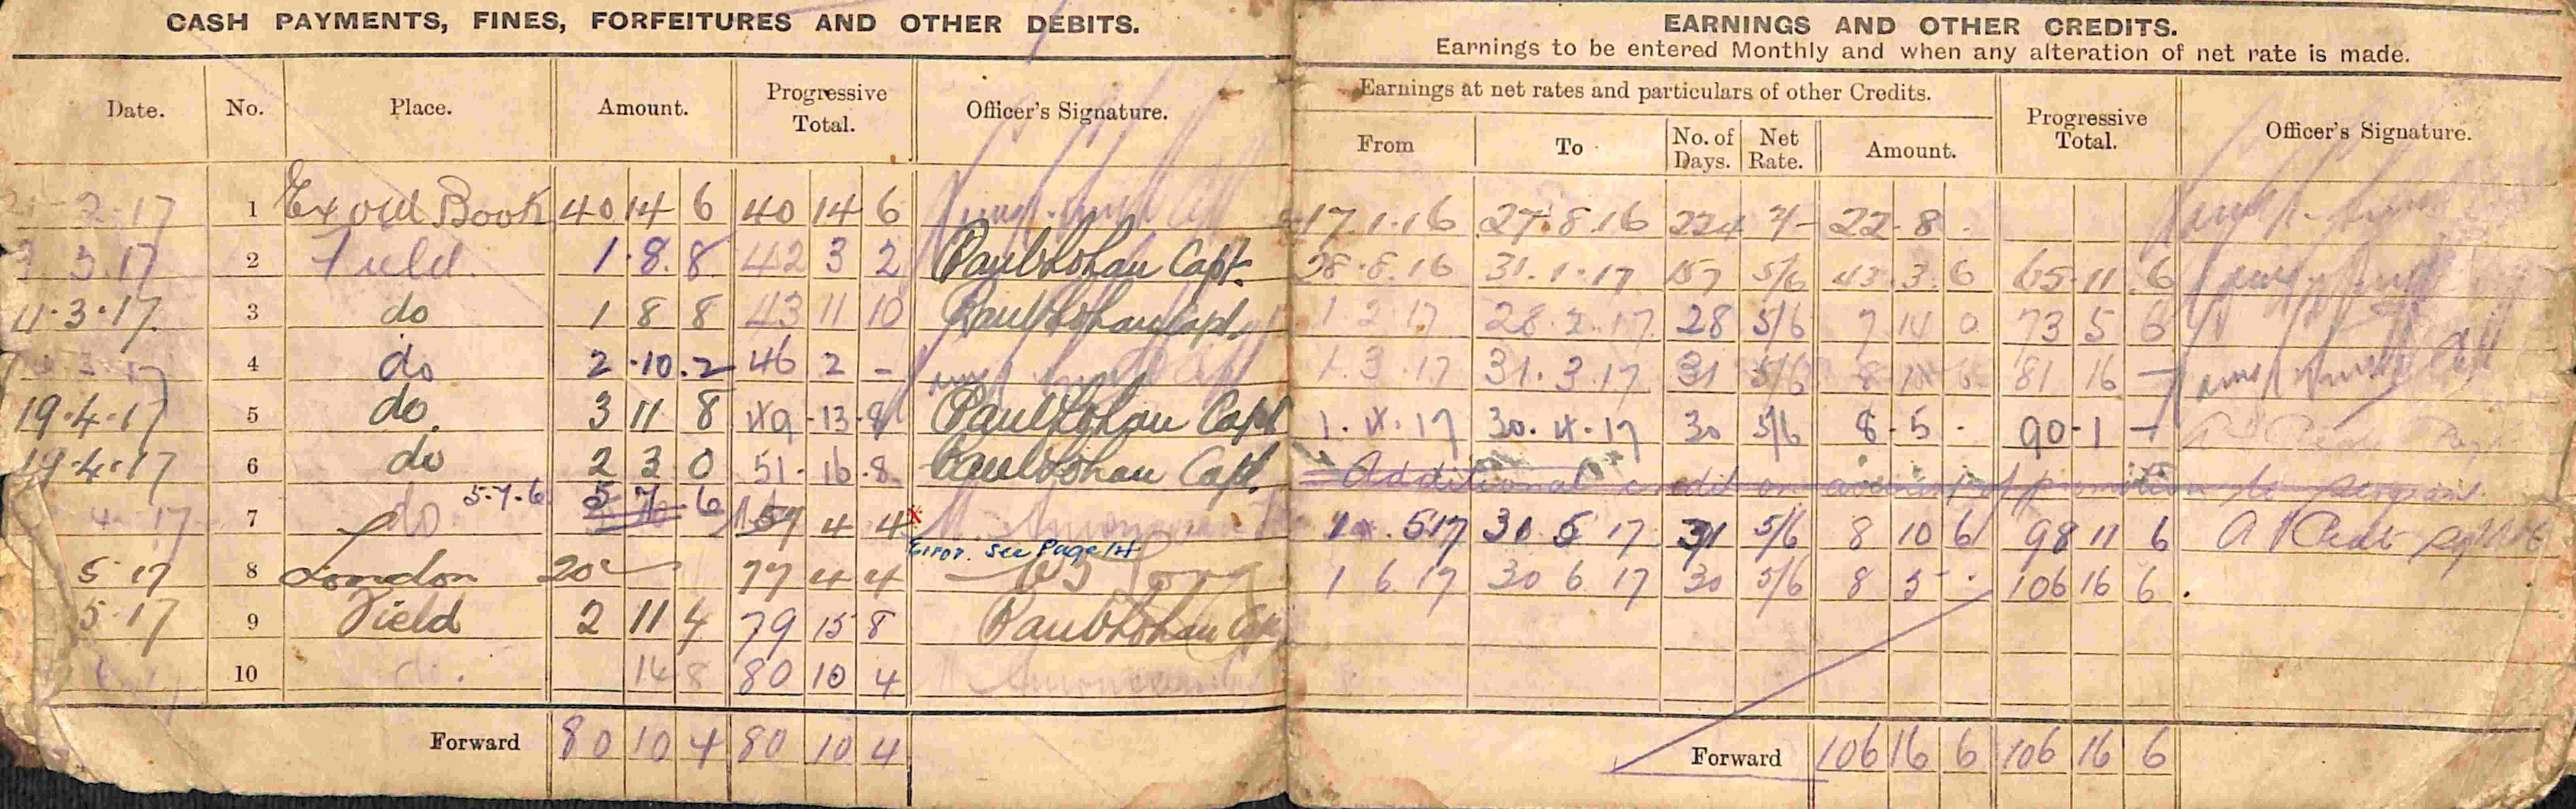 CASH PAYMENTS, FINES, FORFEITURES AND OTHER DEBITS.
Date. No. Place. Amount. Progressive Total. Officer's Signature.
2.17 1 Ex old Book 40 14 6 40 14 6
3.17 2 Field. 1.8.8 42 3 2 Capt.
11.3.17. 3 do 1 8 8 43 11 10 Capt.
4 do 2.10.2 46 2 -
19.4.17 5 do. 3 11 8 49.13.8 Capt
19.4.17 6 do 2 3 0 51.16.8 Capt.
4 17 7 do 5.7.6 5 7 6 57 4 4 x
Error. See Page
5 17 8 London 20 77 4 4
5.17 9 Field 2 11 4 79 15 8
10 do. 14 8 80 10 4
Forward 80 10 4 80 10 4
EARNINGS AND OTHER CREDITS.
Earnings to be entered Monthly and when any alteration of net rate is made.
Earnings at net rates and particulars of other Credits. Progressive Total. Officer's Signature.
From To No. of Days. Net Rate. Amount.
17.1.16 27.8.16 224 22.8.
28.8.16 31.1.17 157 5/6 43.3.6 65.11.6
1.2.17 28.2.17. 28 5/6 7 14 0 73 5 6
1.3.17 31.3.17 31 5/6 8 10 6 81 16 -
1.4.17 30.4.17 30 5/6 8.5. 90.1 -
Additional credit on account of promotion to
1.5 17 31 5 17 31 5/6 8 10 6 98 11 6
1 6 17 30 6 17 30 5/6 8 5 - 106 16 6
Forward 106 16 6 106 16 6